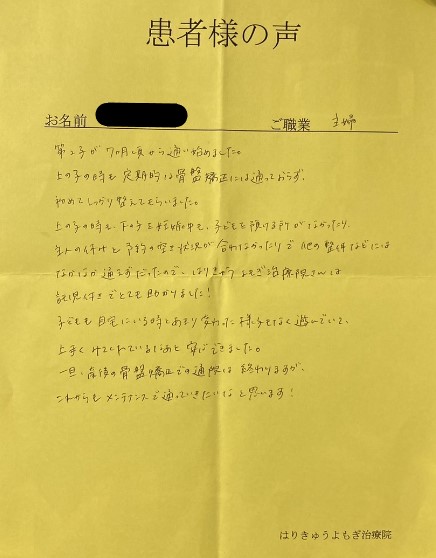 患者様の声
お名前 ご職業 主婦
第2子が7ヶ月頃から通い始めました。
上の子の時も定期的な骨盤矯正には通っておらず、
初めてしっかり整えてもらいました。
上の子の時も、下の子を妊娠中も、子どもを預ける所がなかったり、
主人の休みと予約の空き状況が合わなかったりで他の整体などには
なかなか通えずだったので、はりきゅうよもぎ治療院さんは
託児付きでとても助かりました!
子どもも自宅にいる時とあまり変わった様子もなく遊んでいて、
上手くみてくれているなあと安心できました。
一旦、産後の骨盤矯正での通院は終わりますが、
これからもメンテナンスで通っていきたいなと思います!
はりきゅうよもぎ治療院